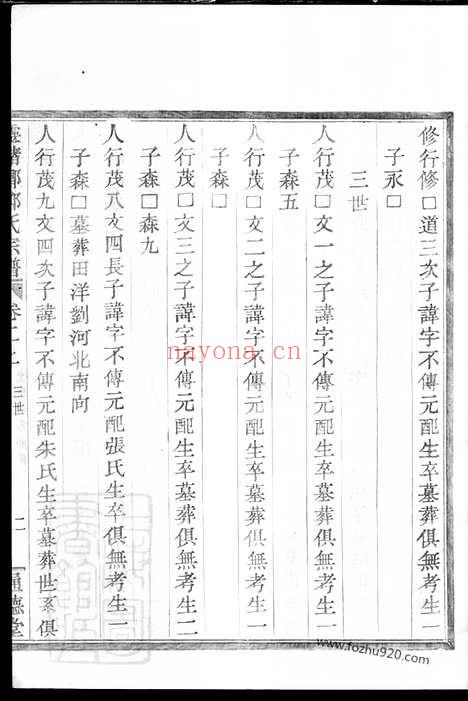 修行修□道三次子諱字不傳元配生卒墓葬俱無考生一
子永□
三世
人行茂□文一之子諱字不傳元配生卒墓葬俱無考生一
子森五
人行茂□文二之子諱字不傳元配生卒墓葬俱無考生一
子森□
人行茂□文三之子諱字不傳元配生卒墓葬俱無考生二
子森□森九
人行茂八文四長子諱字不傳元配張氏生卒俱無考生一
子森□墓葬田洋劉河北南向
人行茂九文四次子諱字不傳元配朱氏生卒墓葬世系俱
氏宗譜 卷二之 三世 二 通德堂
nayona.cn
www.fozhu920.com